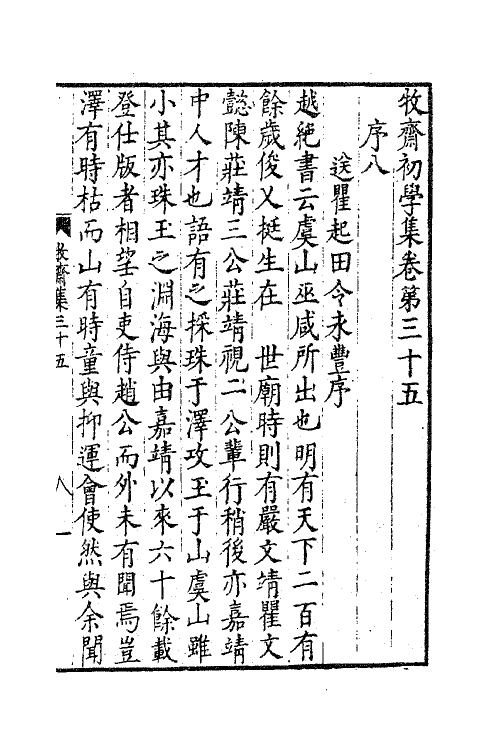 牧齋初學集卷第三十五
序八
送瞿起田令永豐序
越絶書云虞山巫咸所出也明有天下二百有
餘歲俊乂挺生在　世廟時則有嚴文靖瞿文
懿陳莊靖三公莊靖視二公輩行稍後亦嘉靖
中人才也語有之探珠于澤攻玉于山虞山雖
小其亦珠玉之淵海與由嘉靖以來六十餘載
登仕版者相望自吏侍趙公而外未有聞焉豈
澤有時枯而山有時童與抑運會使然與余聞
牧齋集三十五
八
一